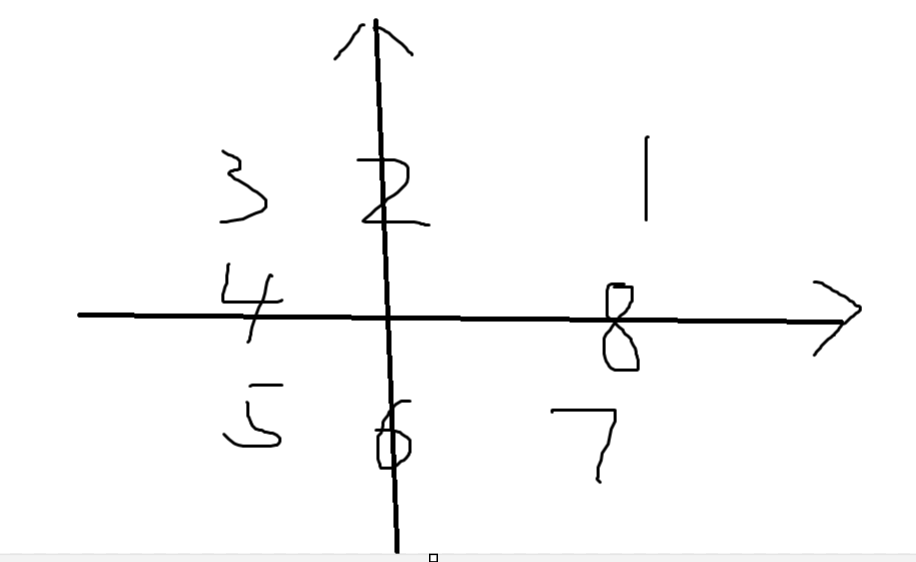 3 2 1
4 8
5 6 7